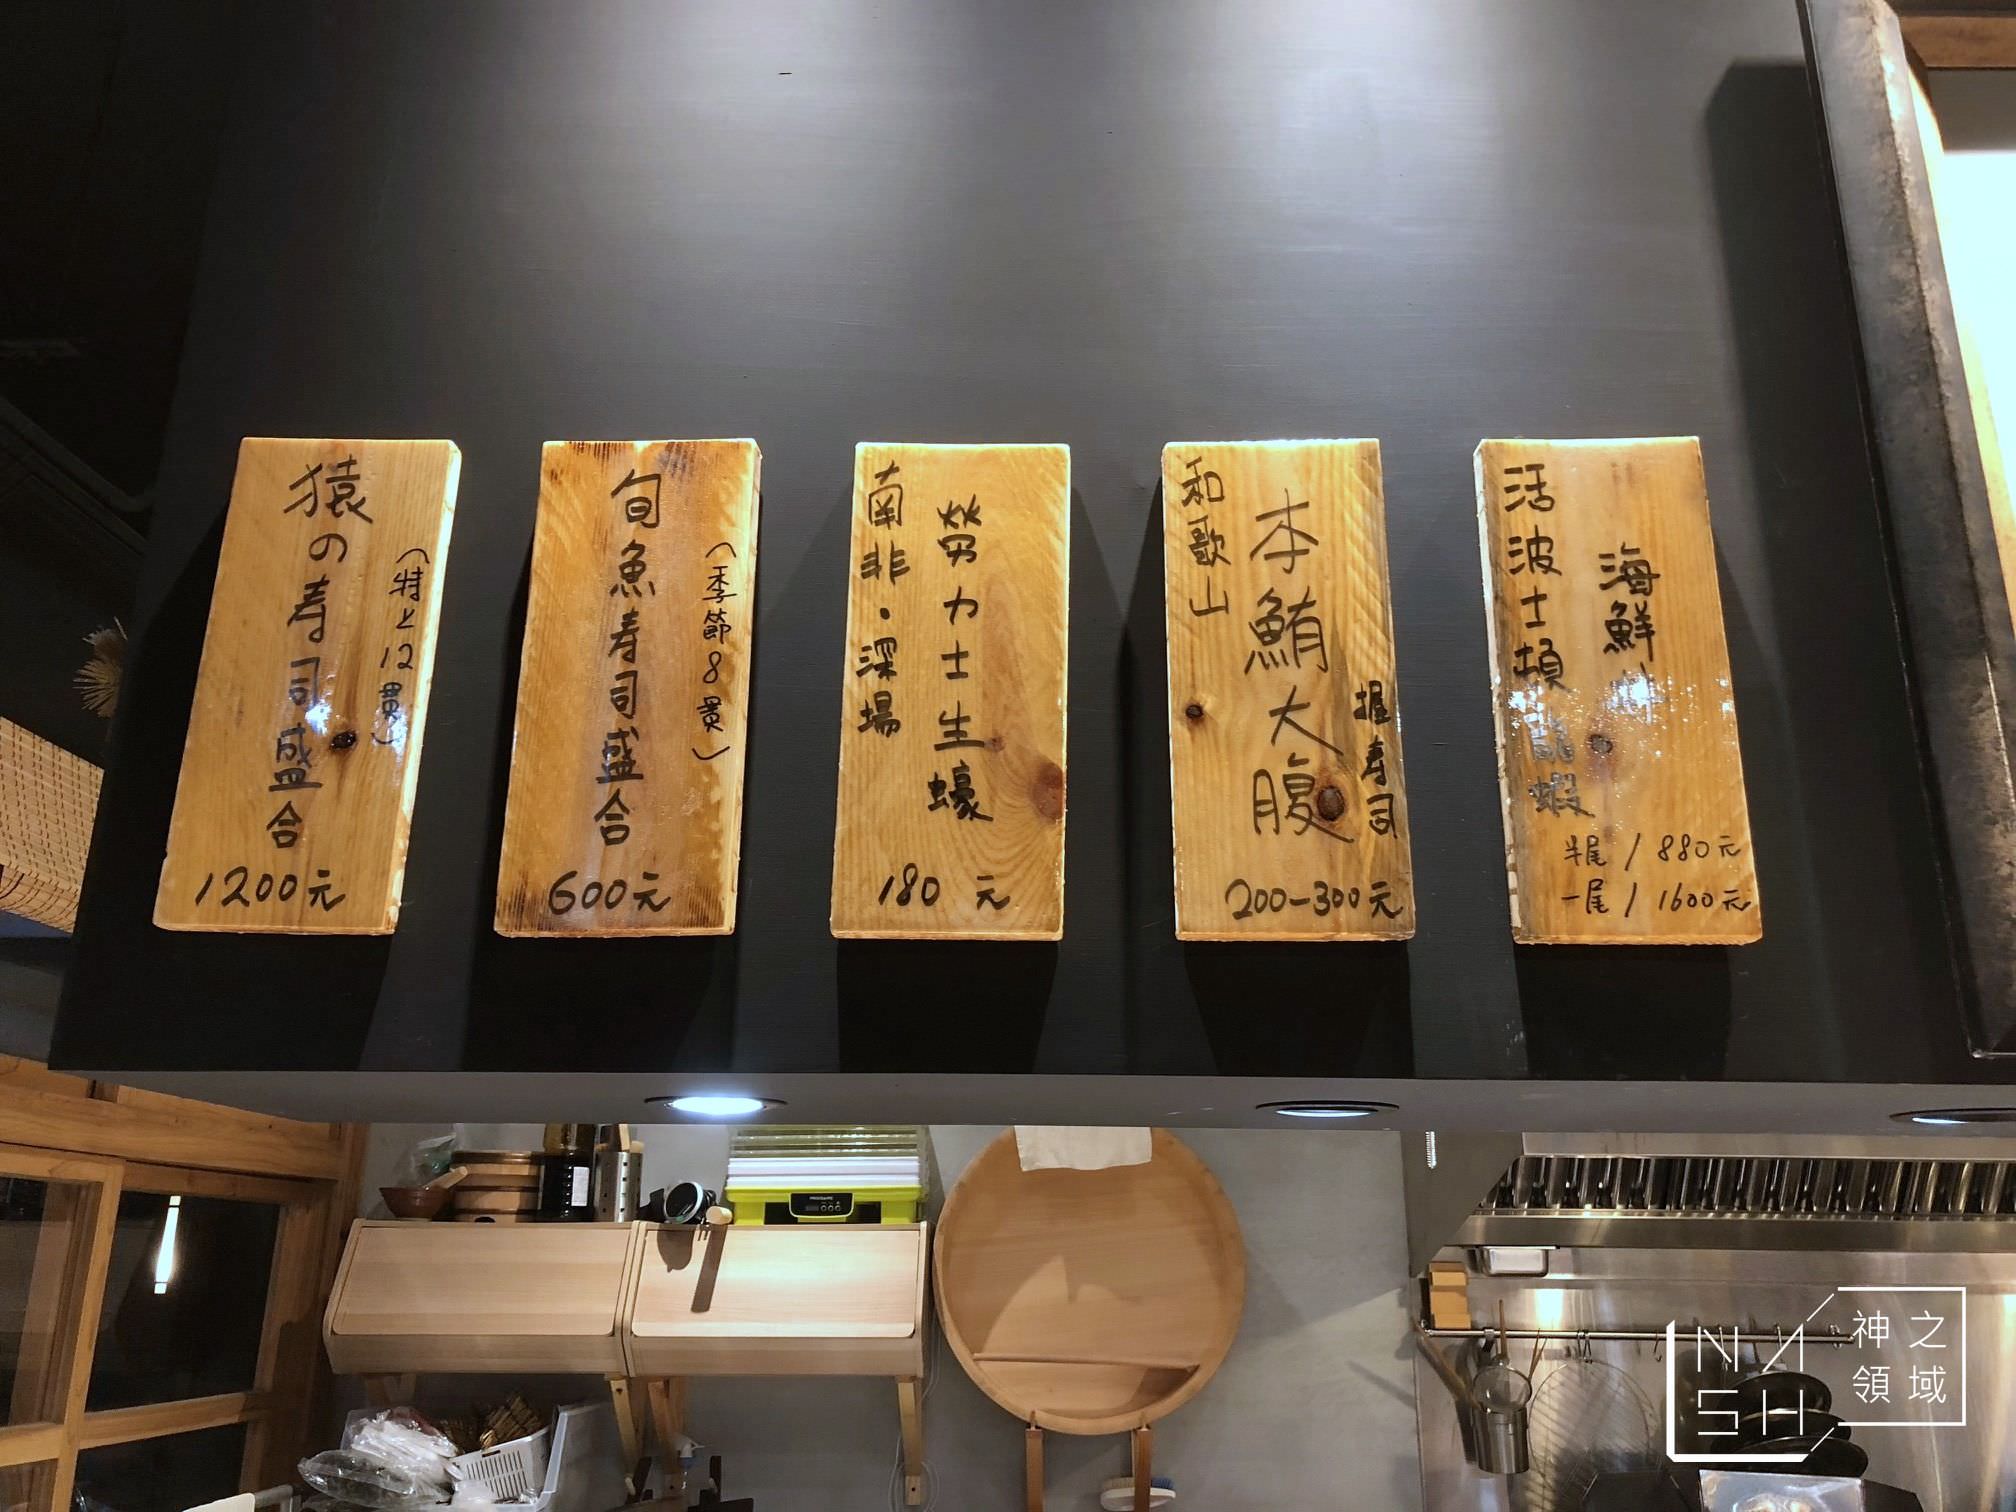 猿の寿司盛合
(特上12貫)
1200元
旬魚寿司盛合
(季節8貫)
600元
南非・深場
勞力士生蠔
180 元
和歌山
本鮪大腹
握寿司
200-300元
活波士頓龍蝦
海鮮
半尾 / 880元
一尾 / 1600元
NASH
神之領域